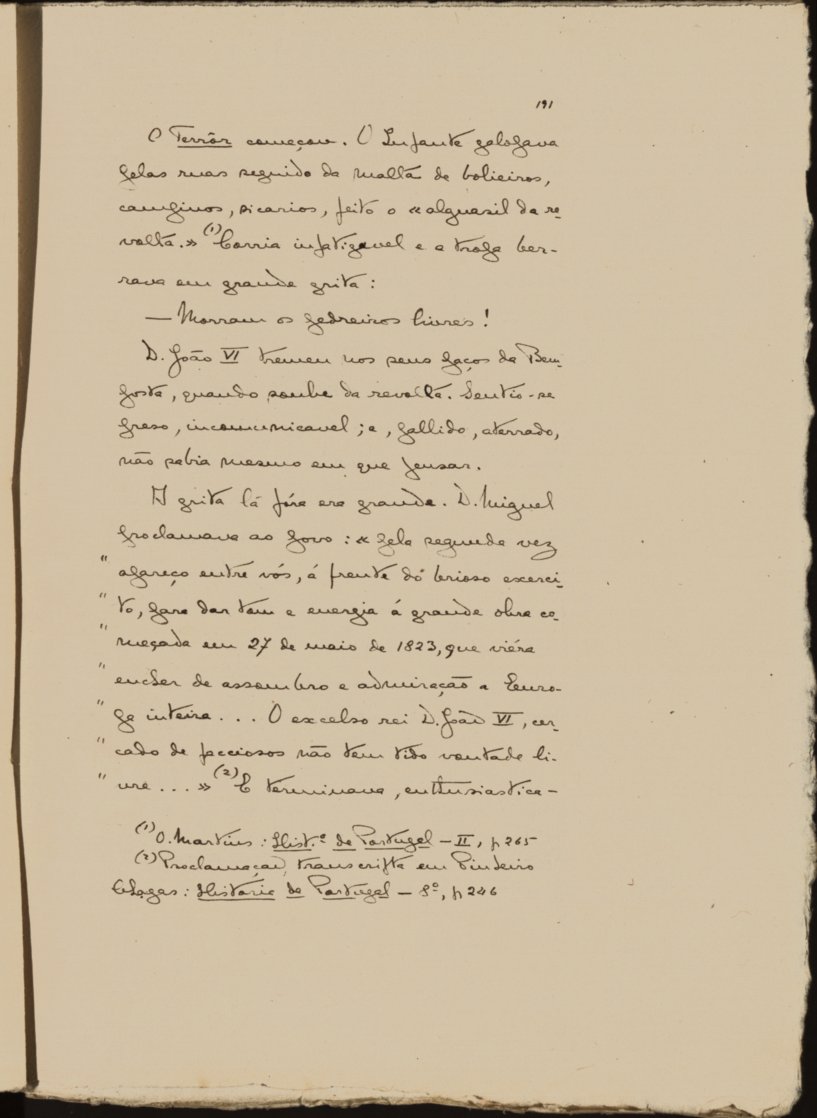 191
O Terrôr começou. O Infante galopava
pelas ruas seguido da malta de bolieiros,
campinos, sicarios, feito o «alguasil da re-
volta.» (1) Corria infatigavel e a tropa ber-
rava em grande grita:
— Morram os pedreiros livres!
D. João VI tremeu nos seus paços da Bem-
posta, quando soube da revolta. Sentio-se
preso, incomunicavel; e, pallido, aterrado,
não sabia mesmo em que pensar.
A grita lá fóra era grande. D. Miguel
proclamava ao povo: « pela segunda vez
" apareço entre vós, á frente do brioso exerci-
" to, para dar tom e energia á grande obra co-
" meçada em 27 de maio de 1823, que viéra
" encher de assombro e admiração a Euro-
" pa inteira... O excelso rei D. João VI, cer-
" cado de facciosos não tem tido vontade li-
" vre...» (2) E terminava, enthusiastica-
(1) O. Martins: Hist.ª de Portugal – II, p 265
(2) Proclamação, transcripta em Pinheiro
Chagas: Historia de Portugal – 8º, p 246